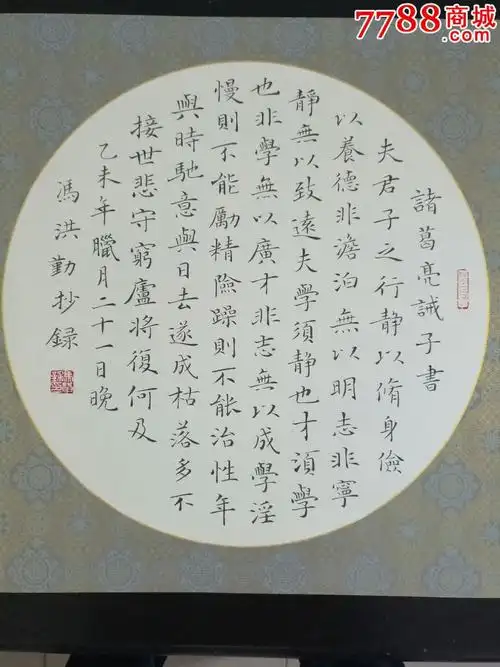 7788商城
諸葛亮誡子書
夫君子之行静以脩身儉
以養德非澹泊無以明志非寧
静無以致遠夫學須静也才須學
也非學無以廣才非志無以成學淫
慢則不能勵精險躁則不能治性年
與時馳意與日去遂成枯落多不
接世悲守窮廬將復何及
乙未年臘月二十一日晚
馮洪勤抄録